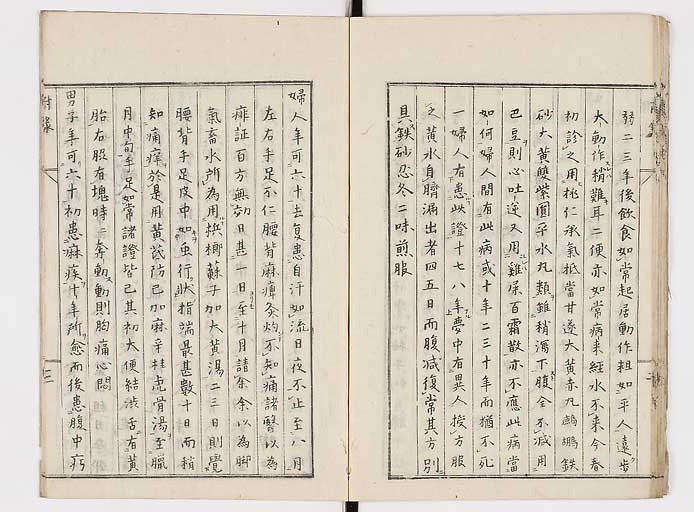 發二三年後飲食如常起居動作粗如平人遠步
大動作稍難耳二便亦如常病来經水不来今春
初診之用桃仁承氣抵當甘遂大黄赤丸鷓鴣鉄
砂大黄雙紫圓平水丸類雖稍瀉下腹全不减用
巴豆則心吐逆又用雞屎百霜散亦不應此病當
如何婦人間有此病或十年二三十年而猶不死
一婦人有患此證十七八年夢中有異人授方服
之黄水自臍漏出者四五日而腹减復常其方別
具鉄砂忍冬二味煎服
婦人年可六十去夏患自汗如流日夜不止至八月
左右手足不仁腰背麻痺灸灼不知痛諸醫以為
痱証百方無効日甚一日至十月請余余以為脚
氣畜水所為用檳榔蘇子加大黄湯二三日則覺
腰背手足皮中如虫行狀指端最甚數十日而稍
知痛癢於是用黄芪防己加麻辛桂虎骨湯至臘
月中旬手足如常諸證皆已其初大便結渋舌有黄
胎右股有塊時〻奔動動則胸痛心悶
男子年可六十初患麻疾十年所愈而後患腹中痛
附録